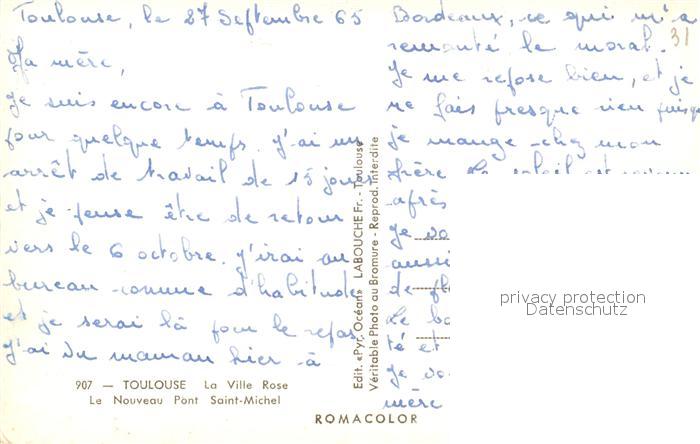 Toulouse, le 27 Septembre 65
Ma mère,
Je suis encore à Toulouse
pour quelque temps. J'ai un
arrêt de travail de 15 jours
et je pense être de retour
vers le 6 octobre. J'irai au
bureau comme d'habitude
et je serai là pour le repas.
J'ai vu maman hier à
Bordeaux, ce qui m'a
remonté le moral.
31
Je me repose bien, et je
ne fais presque rien puisque
je mange chez mon
frère. Le soleil est revenu
après
Je
aussi
de
Le
té et
Je
mère
Edit. «Pyr. Océan» LABOUCHE Fr. - Toulouse
Véritable Photo au Bromure - Reprod. Interdite
907 — TOULOUSE La Ville Rose
Le Nouveau Pont Saint-Michel
ROMACOLOR
privacy protection
Datenschutz